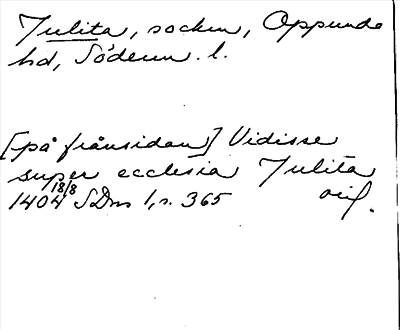 Julita, socken, Oppunda
hd, Söderm. l.
[på frånsidan] Vidisse
super ecclesia Julita
1404 18/8 SDns 1, s. 365 orig.